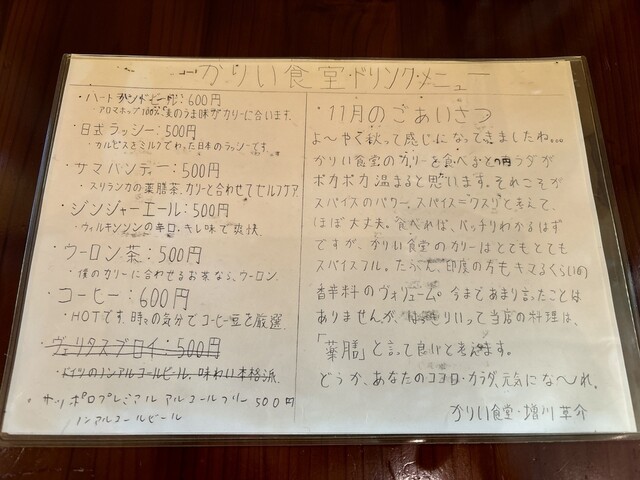 かりい食堂・ドリンク・メニュー
・ハートランドビール：600円
・アロマホップ100%、麦のうま味がカリーに合います。
・日式ラッシー：500円
・カルピスをミルクでわった日本のラッシーです。
・サマバンティー：500円
・スリランカの薬膳茶、カリーと合わせてセルフケア
・ジンジャーエール：500円
・ウィルキンソンの辛口、キレ味で爽快。
・ウーロン茶：500円
・僕のカリーに合わせるお茶なら、ウーロン。
・コーヒー：600円
・HOTです。時々の気分でコーヒー豆を厳選。
・ヴェリタスブロイ：500円
・ドイツのノンアルコールビール。味わい本格派。
・サッポロプレミアルアルコールフリー 500円
ノンアルコールビール
・11月のごあいさつ
よ〜やく秋って感じになってきましたね。。。
かりい食堂のカリーを食べるとカラダが
ポカポカ温まると思います。それこそが
スパイスのパワー。スパイス＝クスリと考えて、
ほぼ大丈夫。食べれば、バッチリわかるはず
ですが、かりい食堂のカリーはとてもとても
スパイスフル。たぶん、印度の方もキマるくらいの
香辛料のヴォリューム。今まであまり言ったことは
ありませんが、はっきりいって当店の料理は、
「薬膳」と言って良いと考えます。
どうか、あなたのココロ・カラダ、元気にな〜れ。
かりい食堂・増川草介